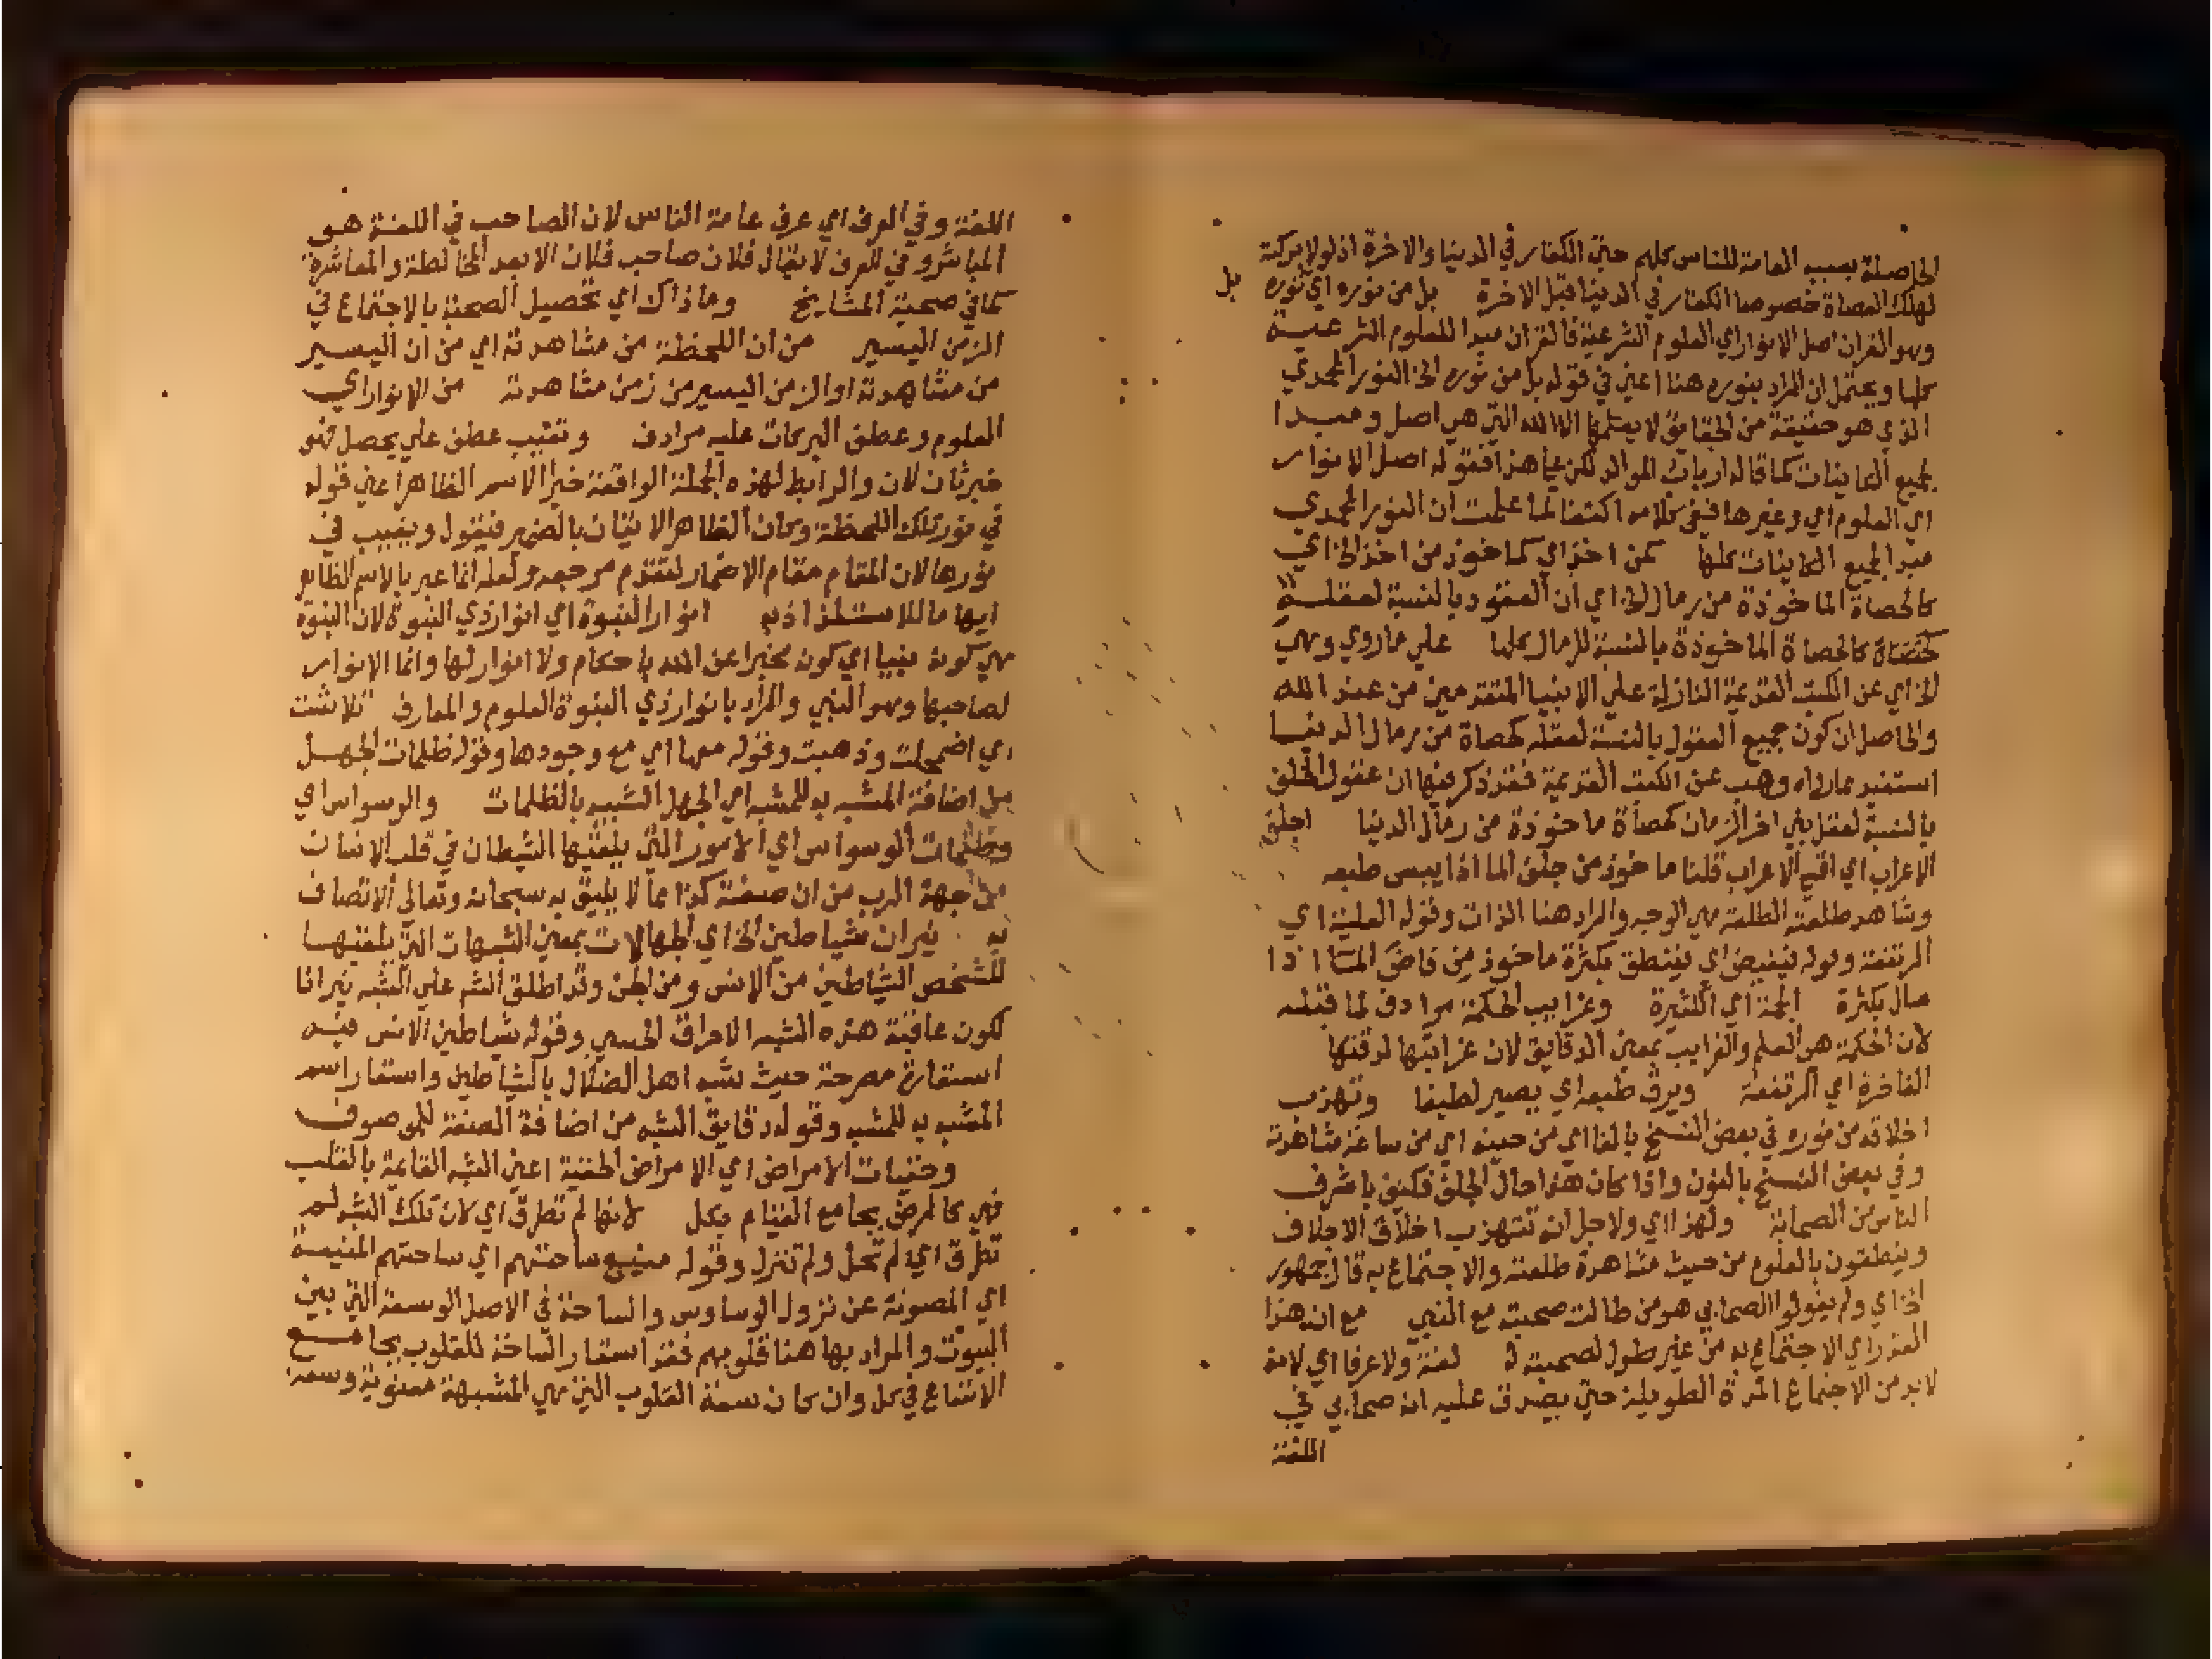 الحاصلة بسببه العامة للناس كلهم حتى الكفار في الدنيا والاخرة اذ لولا بركته
لهلك العصاة خصوصا الكفار في الدنيا قبل الاخرة بل من نوره اي نوره
بل
وهو القران اصل الانوار اي العلوم الشرعية فالقران مبدا للعلوم الشرعية
كلها ويحتمل ان المراد بنوره هنا اعني في قوله بل من نوره الخ النور المحمدي
الذي هو حقيقة من الحقايق لا يعلمها الا الله التي هي اصل ومبدا
لجميع الكاينات كما قاله ارباب الموالد لكن على هذا فقوله اصل الانوار
اي العلوم اي وغيرها ففي كلامه اكتفا لما علمت ان النور المحمدي
مبدا لجميع الكاينات كلها كمن اخذ اي كماخوذ من اخذ الخ اي
كالحصاة الماخوذة من رمال الخ اي ان العقول بالنسبة لعقله
كحصاة كالحصاة الماخوذة بالنسبة للرمال كلها على ما روي وهي
الخ اي عن الكتب القديمة النازلة على الانبيا المتقدمين من عند الله
والحاصل ان كون جميع العقول بالنسبة لعقله كحصاة من رمال الدنيا
استفيد مما رواه وهب عن الكتب القديمة فقد ذكر فيها ان عقول الخلق
بالنسبة لعقل نبي اخر الزمان كحصاة ماخوذة من رمال الدنيا اجلق
الاعراب اي اقبح الاعراب قلنا ماخوذ من جلق الما اذا يبس طبعه
وشاهد طلعته الطلعة هي الوجه والمراد هنا الذات وقوله العلية اي
المرتفعة وقوله فيفيض اي فينطق بكثرة ماخوذ من فاض الما اذا
سال بكثرة الجمة اي الكثيرة وغرايب الحكمة مرادف لما قبله
لان الحكمة هو العلم والغرايب بمعنى الدقايق لان غرابتها لدقتها
الفاخرة اي المرتفعة ويرق طبعه اي يصير لطيفا وتهذب
اخلاقه من فوره في بعض النسخ بالفا اي من حينه اي من ساعة مشاهدته
وفي بعض النسخ بالنون واذا كان هذا حال الجلف فكيف باشرف
الناس من الصحابة ولهذا اي ولاجل ان تتهذب اخلاق الاجلاف
وينطقون بالعلوم من حيث مشاهدة طلعته والاجتماع به قال جمهور
الخ اي ولم يقولوا الصحابي هو من طالت صحبته مع النبي مع ان هذا
القدر اي الاجتماع به من غير طول لصحبته له لغة ولا عرفا اي لانه
لابد من الاجتماع المدة الطويلة حتى يصدق عليه انه صحابي في
اللغة
اللغة وفي العرف اي عرف عامة الناس لان الصاحب في اللغة هو
المباشر وفي العرف لا يقال فلان صاحب فلان الا بعد المخالطة والمعاشرة
كما في صحبة المشايخ وما ذاك اي تحصيل الصحبة بالاجتماع في
الزمن اليسير من ان اللحظة من مشاهدته اي من ان اليسير
من مشاهدته او الزمن اليسير من زمن مشاهدته من الانوار اي
العلوم وعطف البركات عليه مرادف وتغيب عطف على يحصل فهو
خبر ثان لان والرابط لهذه الجملة الواقعة خبرا الاسم الظاهر اعني قوله
في نور تلك اللحظة وكان الظاهر الاتيان بالضمير فيقول ويغيب في
نورها لان المقام مقام الاضمار لتقدم مرجعه ولعله انما عبر بالاسم الظاهر
ايهاما للاستلذاذ به انوار النبوة اي انوار ذي النبوة لان النبوة
هي كونه نبيا اي كونه مخبرا عن الله باحكام ولا انوار لها وانما الانوار
لصاحبها وهو النبي والمراد بانوار ذي النبوة العلوم والمعارف تلاشت
اي اضمحلت وذهبت وقوله معها اي مع وجودها وقوله ظلمات الجهل
من اضافة المشبه به للمشبه اي الجهل الشبيه بالظلمات والوسواس اي
وظلمات الوسواس اي الامور التي يلقيها الشيطان في قلب الانسان
من جهة الرب من ان صفته كذا مما لا يليق به سبحانه وتعالى الاتصاف
به نيران شياطين الخ اي الجهالات بمعنى الشبهات التي يلقيها
للشخص الشياطين من الانس ومن الجن وقد اطلق الشبه على الشبه نيرانا
لكون عاقبة هذه الشبه الاحراق الحسي وقوله شياطين الانس فيه
استعارة مصرحة حيث شبه اهل الضلال بالشياطين واستعار اسم
المشبه به للمشبه وقوله دقايق الشبه من اضافة الصفة للموصوف
وخفيات الامراض اي الامراض الخفية اعني الشبه القاعية بالقلب
فهي كالمرض بجامع القيام بكل لانها لم تطرق اي لان تلك الشبه لم
تطرق اي لم تحل ولم تنزل وقوله منيع ساحتهم اي ساحتهم المنيعة
اي المصونة عن نزول الوساوس والساحة في الاصل الوسعة التي بين
البيوت والمراد بها هنا قلوبهم فقد استعار الساحة للقلوب بجامع
الاتساع في كل وان كان سعة القلوب التي هي المشبهة معنوية وسعة